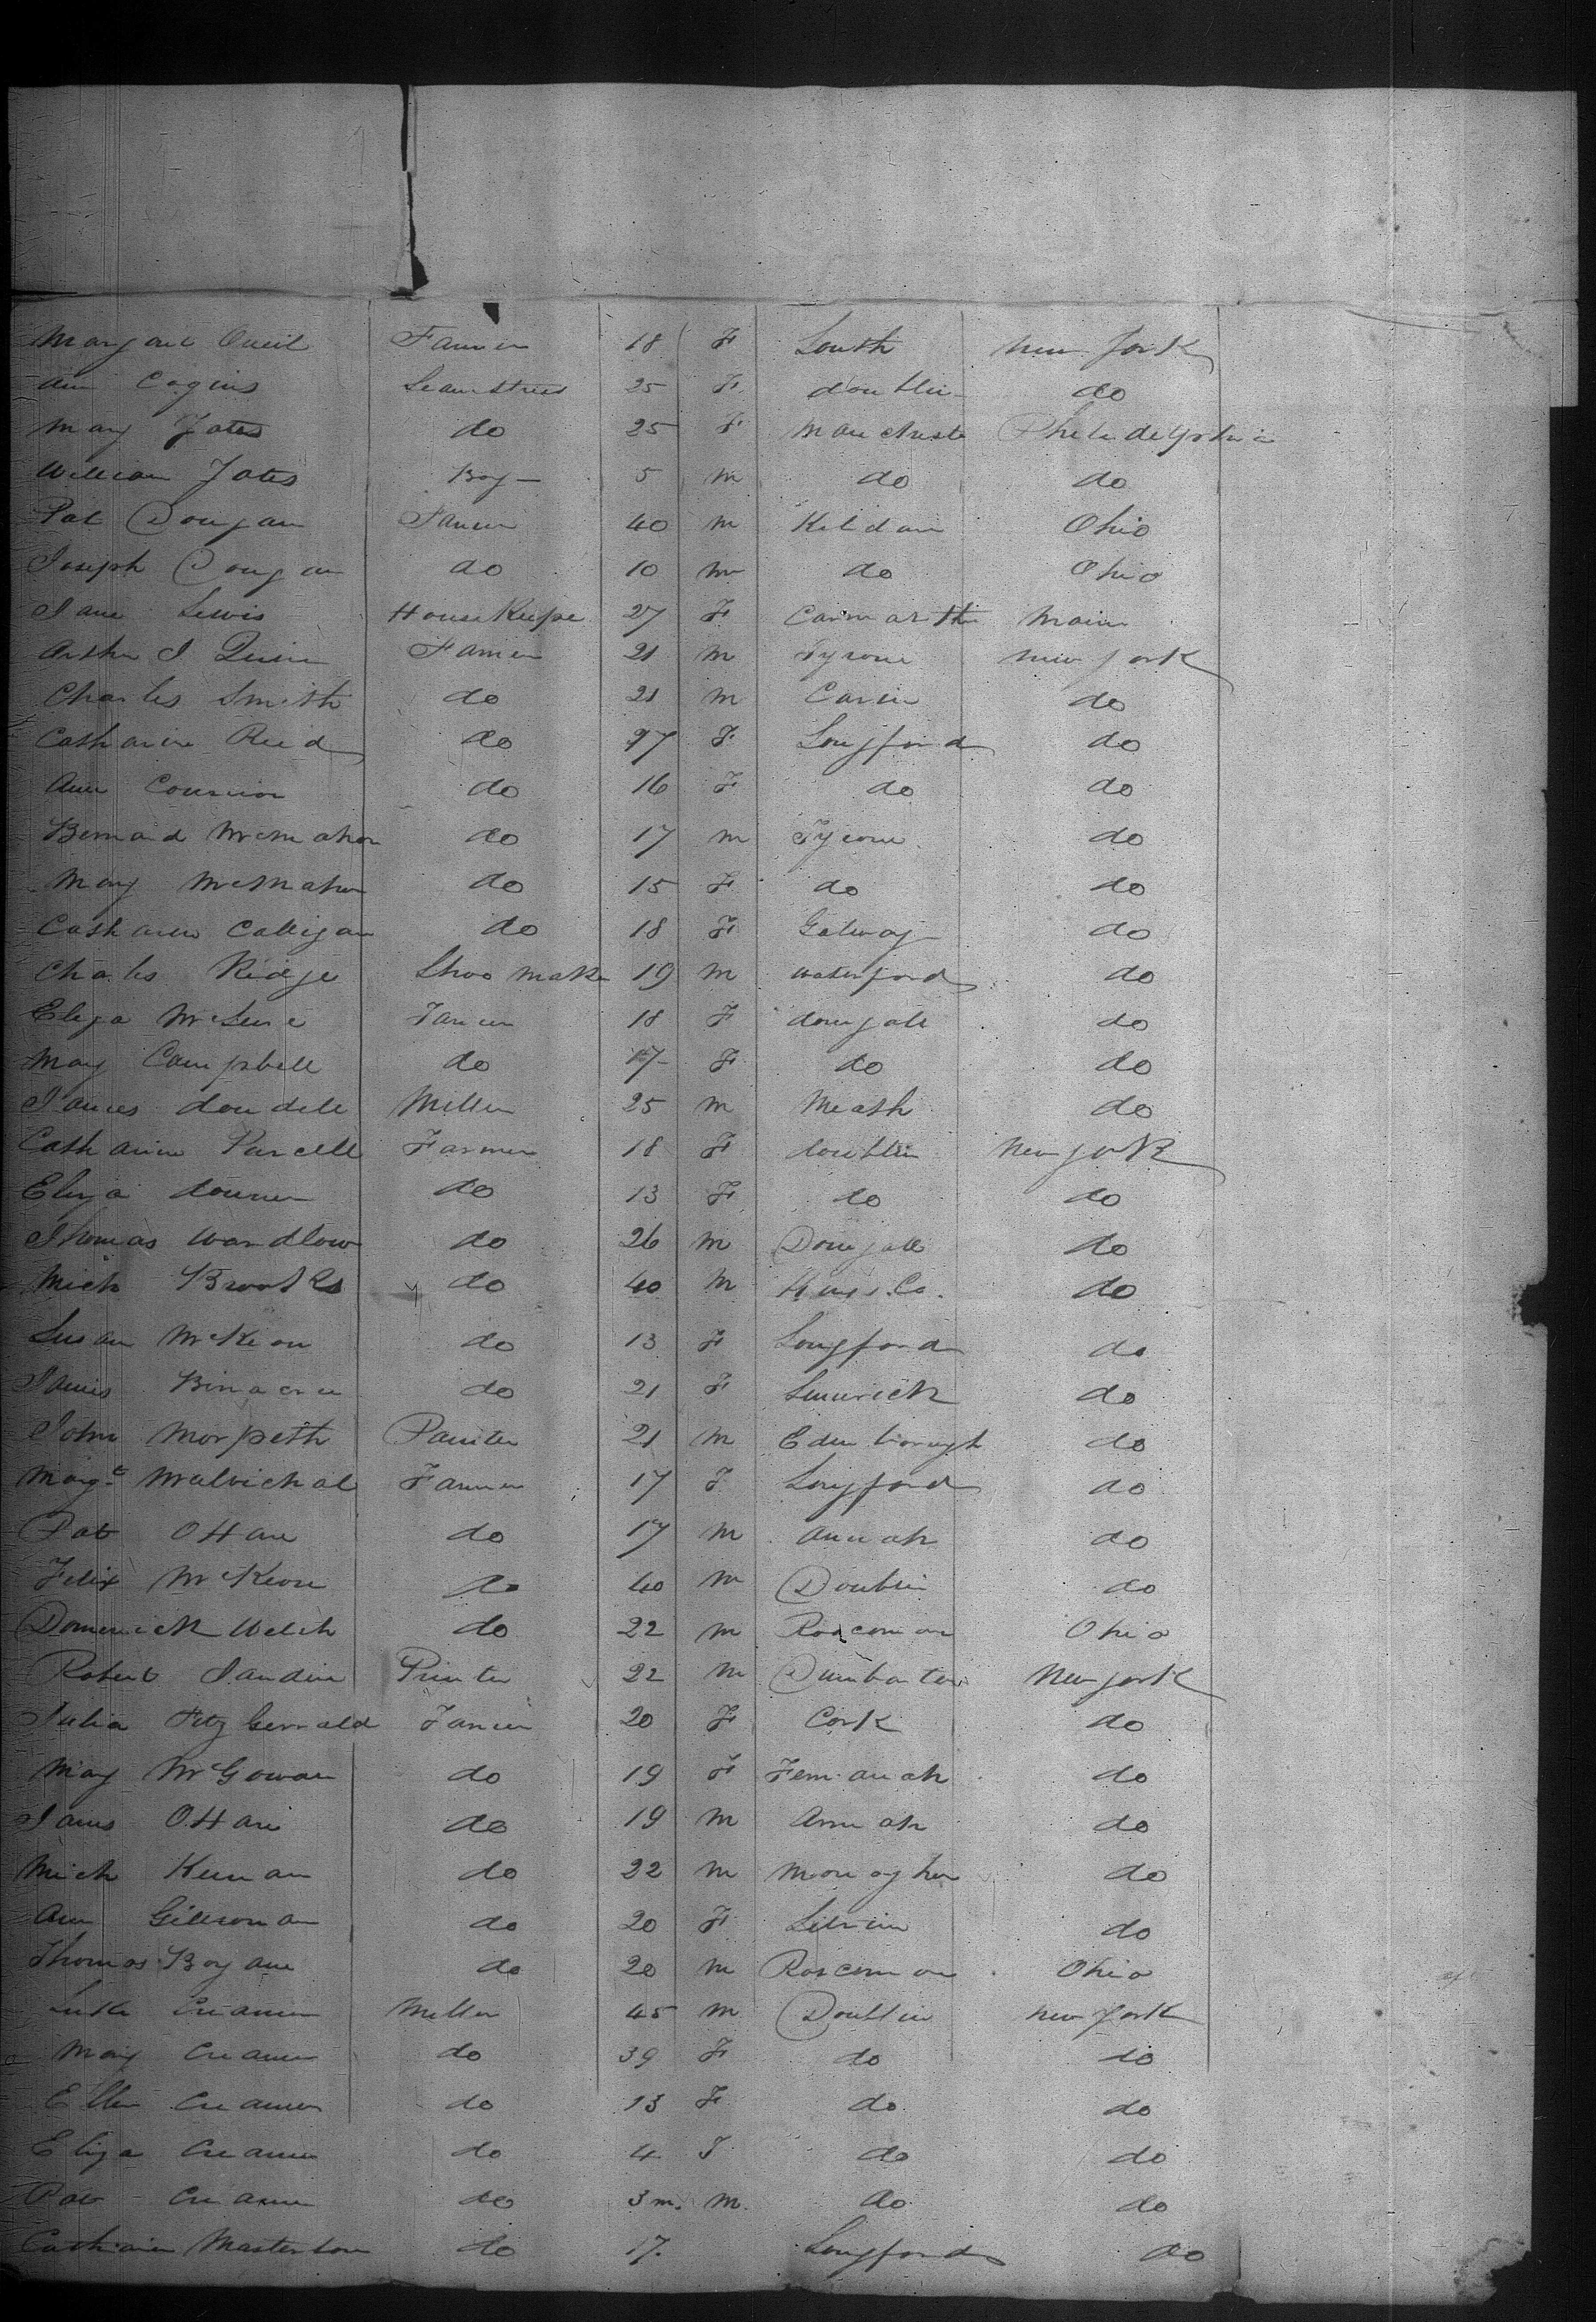 Margaret Oneil Farmer 18 F Louth New York
Ann Cogins Seamstress 25 F doublin do
Mary Yates do 25 F Manchester Philadelphia
William Yates Boy 5 M do do
Pat Dougan Farmer 40 M Kildare Ohio
Joseph Dougan do 10 M do Ohio
Jane Lewis House Keeper 27 F Carmarthe Maine
Arthur J Quin Farmer 21 M Tyrone New York
Charles Smith do 21 M Cavin do
Catharine Reed do 27 F Longford do
Ann do 16 F do do
Bernard McMahon do 17 M Tyrone do
Mary McMahon do 15 F do do
Catharine Colligan do 18 F Galway do
Charles Ridge Shoo maker 19 M Waterford do
Eliza Farmer 18 F dougall do
Mary Campbell do 17 F do do
James doudell Miller 25 M Meath do
Catharine Purcell Farmer 18 F doublin New York
Eliza do 13 F do do
Thomas Wardlow do 26 M Dougall do
Mich Brooks do 40 M Kings Co. do
Susan McKeon do 13 F Longford do
James do 21 F Limerick do
John Morpeth Painter 21 M Edenborough do
Margt Farmer 17 F Longford do
Pat OHare do 17 M do
Felix McKeon do 40 M Doublin do
Domenick Welch do 22 M Roscomon Ohio
Robert Printer 22 M Dumbarton New York
Julia Fitz Gerrald Farmer 20 F Cork do
Mary McGowan do 19 F Fermanah do
James OHare do 19 M Armah do
Mich Keenan do 22 M Monoghan do
Ann do 20 F Letrim do
Thomas do 20 M Roscomon Ohio
Luke Creamer Miller 45 M Doublin New York
Mary Creamer do 39 F do do
Ellen Creamer do 13 F do do
Eliza Creamer do 4 F do do
Pat Creamer do 3 m. M. do do
Catharine Masterson do 17. Longford do